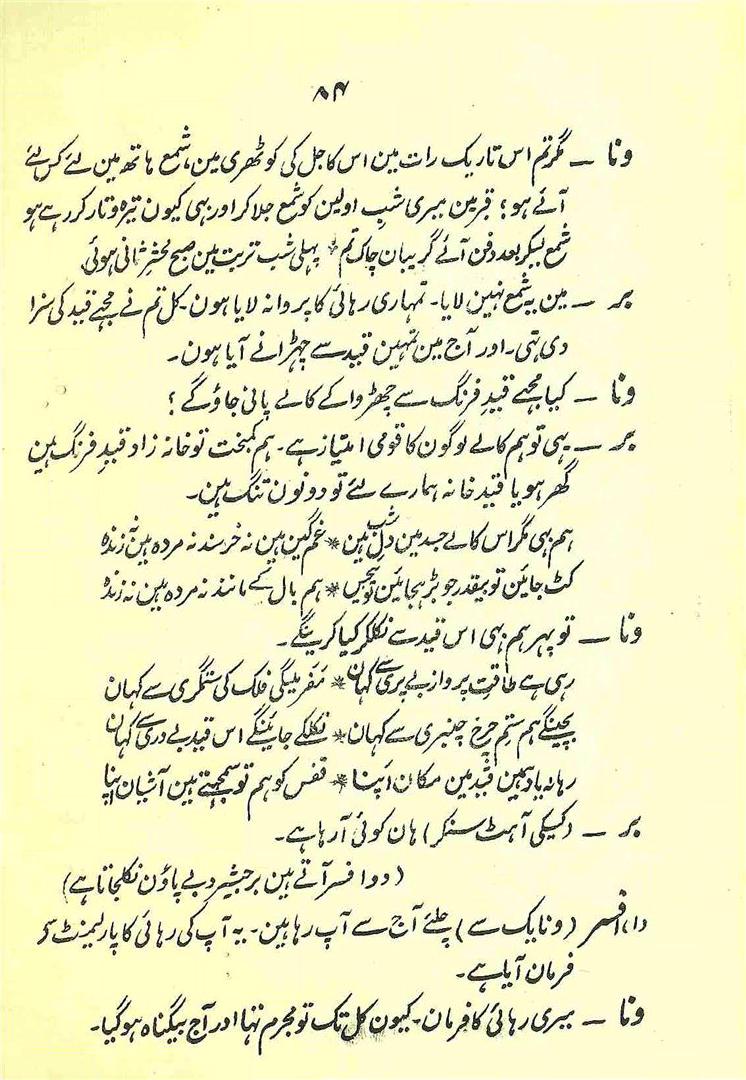 ۸۴
ونا ــ مگر تم اس تاریک رات مین اس کاجل کی کوٹھری مین، شمع ہاتھ مین لئے کس لئے
آئے ہو؟ قبر مین میری شبِ اولین کو شمع جلا کر اور بہی کیون تیرہ و تار کر رہے ہو
شمع لیکر بعد دفن آئے گریبان چاک تم * پہلی شب تربت مین صبح محشرِ ثانی ہوئی
بر ــ مین یہ شمع نہین لایا۔ تمہاری رہائی کا پروانہ لایا ہون۔ کل تم نے مجہے قید کی سزا
دی تہی۔ اور آج مین تمہین قید سے چہڑانے آیا ہون۔
ونا ــ کیا مجہے قیدِ فرنگ سے چھڑوا کے کالے پانی جاؤگے؟
بر ــ یہی تو ہم کالے لوگون کا قومی امتیاز ہے۔ ہم کمبخت تو خانہ زاد قیدِ فرنگ ہین
گھر ہو یا قید خانہ ہمارے لئے تو دونون تنگ ہین۔
ہم بہی مگر اس کالے جسد مین دلِ شب ہین * غمگین ہین نہ خرسند نہ مردہ ہین نہ زندہ
کٹ جائین تو بیقدر جو بڑہجائین تو نجس * ہم بال کے مانند نہ مردہ ہین نہ زندہ
ونا ــ تو پہر ہم بہی اس قید سے نکلکر کیا کرینگے۔
رہی ہے طاقتِ پرواز بے پری سے کہان * مفر ملیگی فلک کی ستمگری سے کہان
بچینگے ہم ستمِ چرخِ چنبری سے کہان * نکلکے جائینگے اس قیدِ بے دری سے کہان
رہا نہ یاد ہمین قید مین مکان اپنا * قفس کو ہم تو سمجہتے ہین آشیان اپنا
بر ــ (کسیکی آہٹ سنکر) ہان کوئی آرہا ہے۔
(دو افسر آتے ہین برجیشر دبے پاؤن نکلجاتا ہے)
(۱) افسر (ونایک سے) چلئے آج سے آپ رہا ہین۔ یہ آپ کی رہائی کا پارلیمنٹ سے
فرمان آیا ہے۔
ونا ــ میری رہائی کا فرمان۔ کیون کل تک تو مجرم تہا اور آج بیگناہ ہوگیا۔